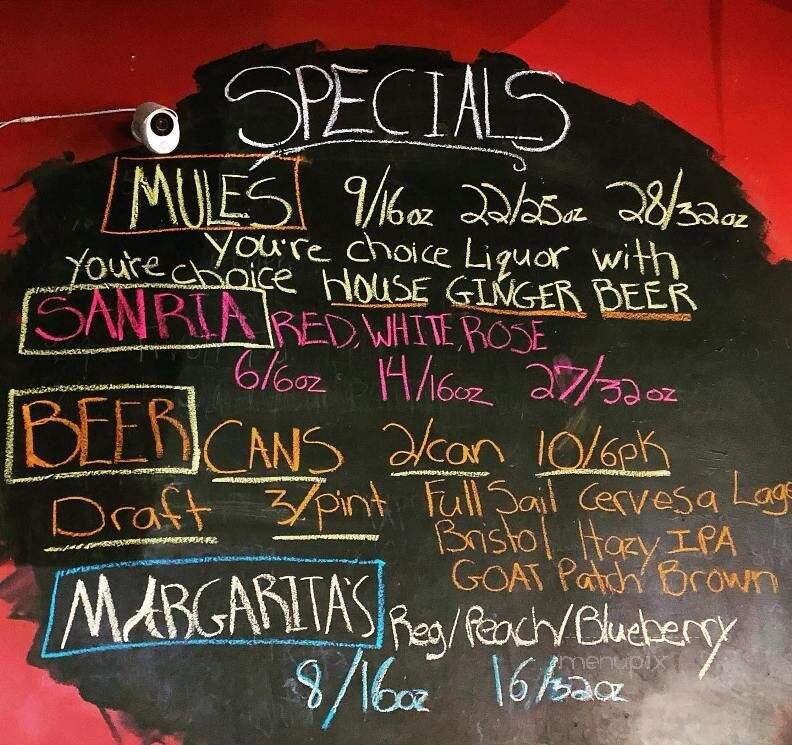 SPECIALS
MULES 9/16oz 22/25oz 28/32oz
You're choice Liquor with
You're choice HOUSE GINGER BEER
SANRIA RED, WHITE, ROSE
6/6oz 14/16oz 27/32oz
BEER CANS 2/can 10/6pk
Draft 3/pint Full Sail Cervesa Lage
Bristol Hazy IPA
GOAT Patch Brown
MARGARITA'S Reg/Peach/Blueberry
menupix
8/16oz 16/32oz